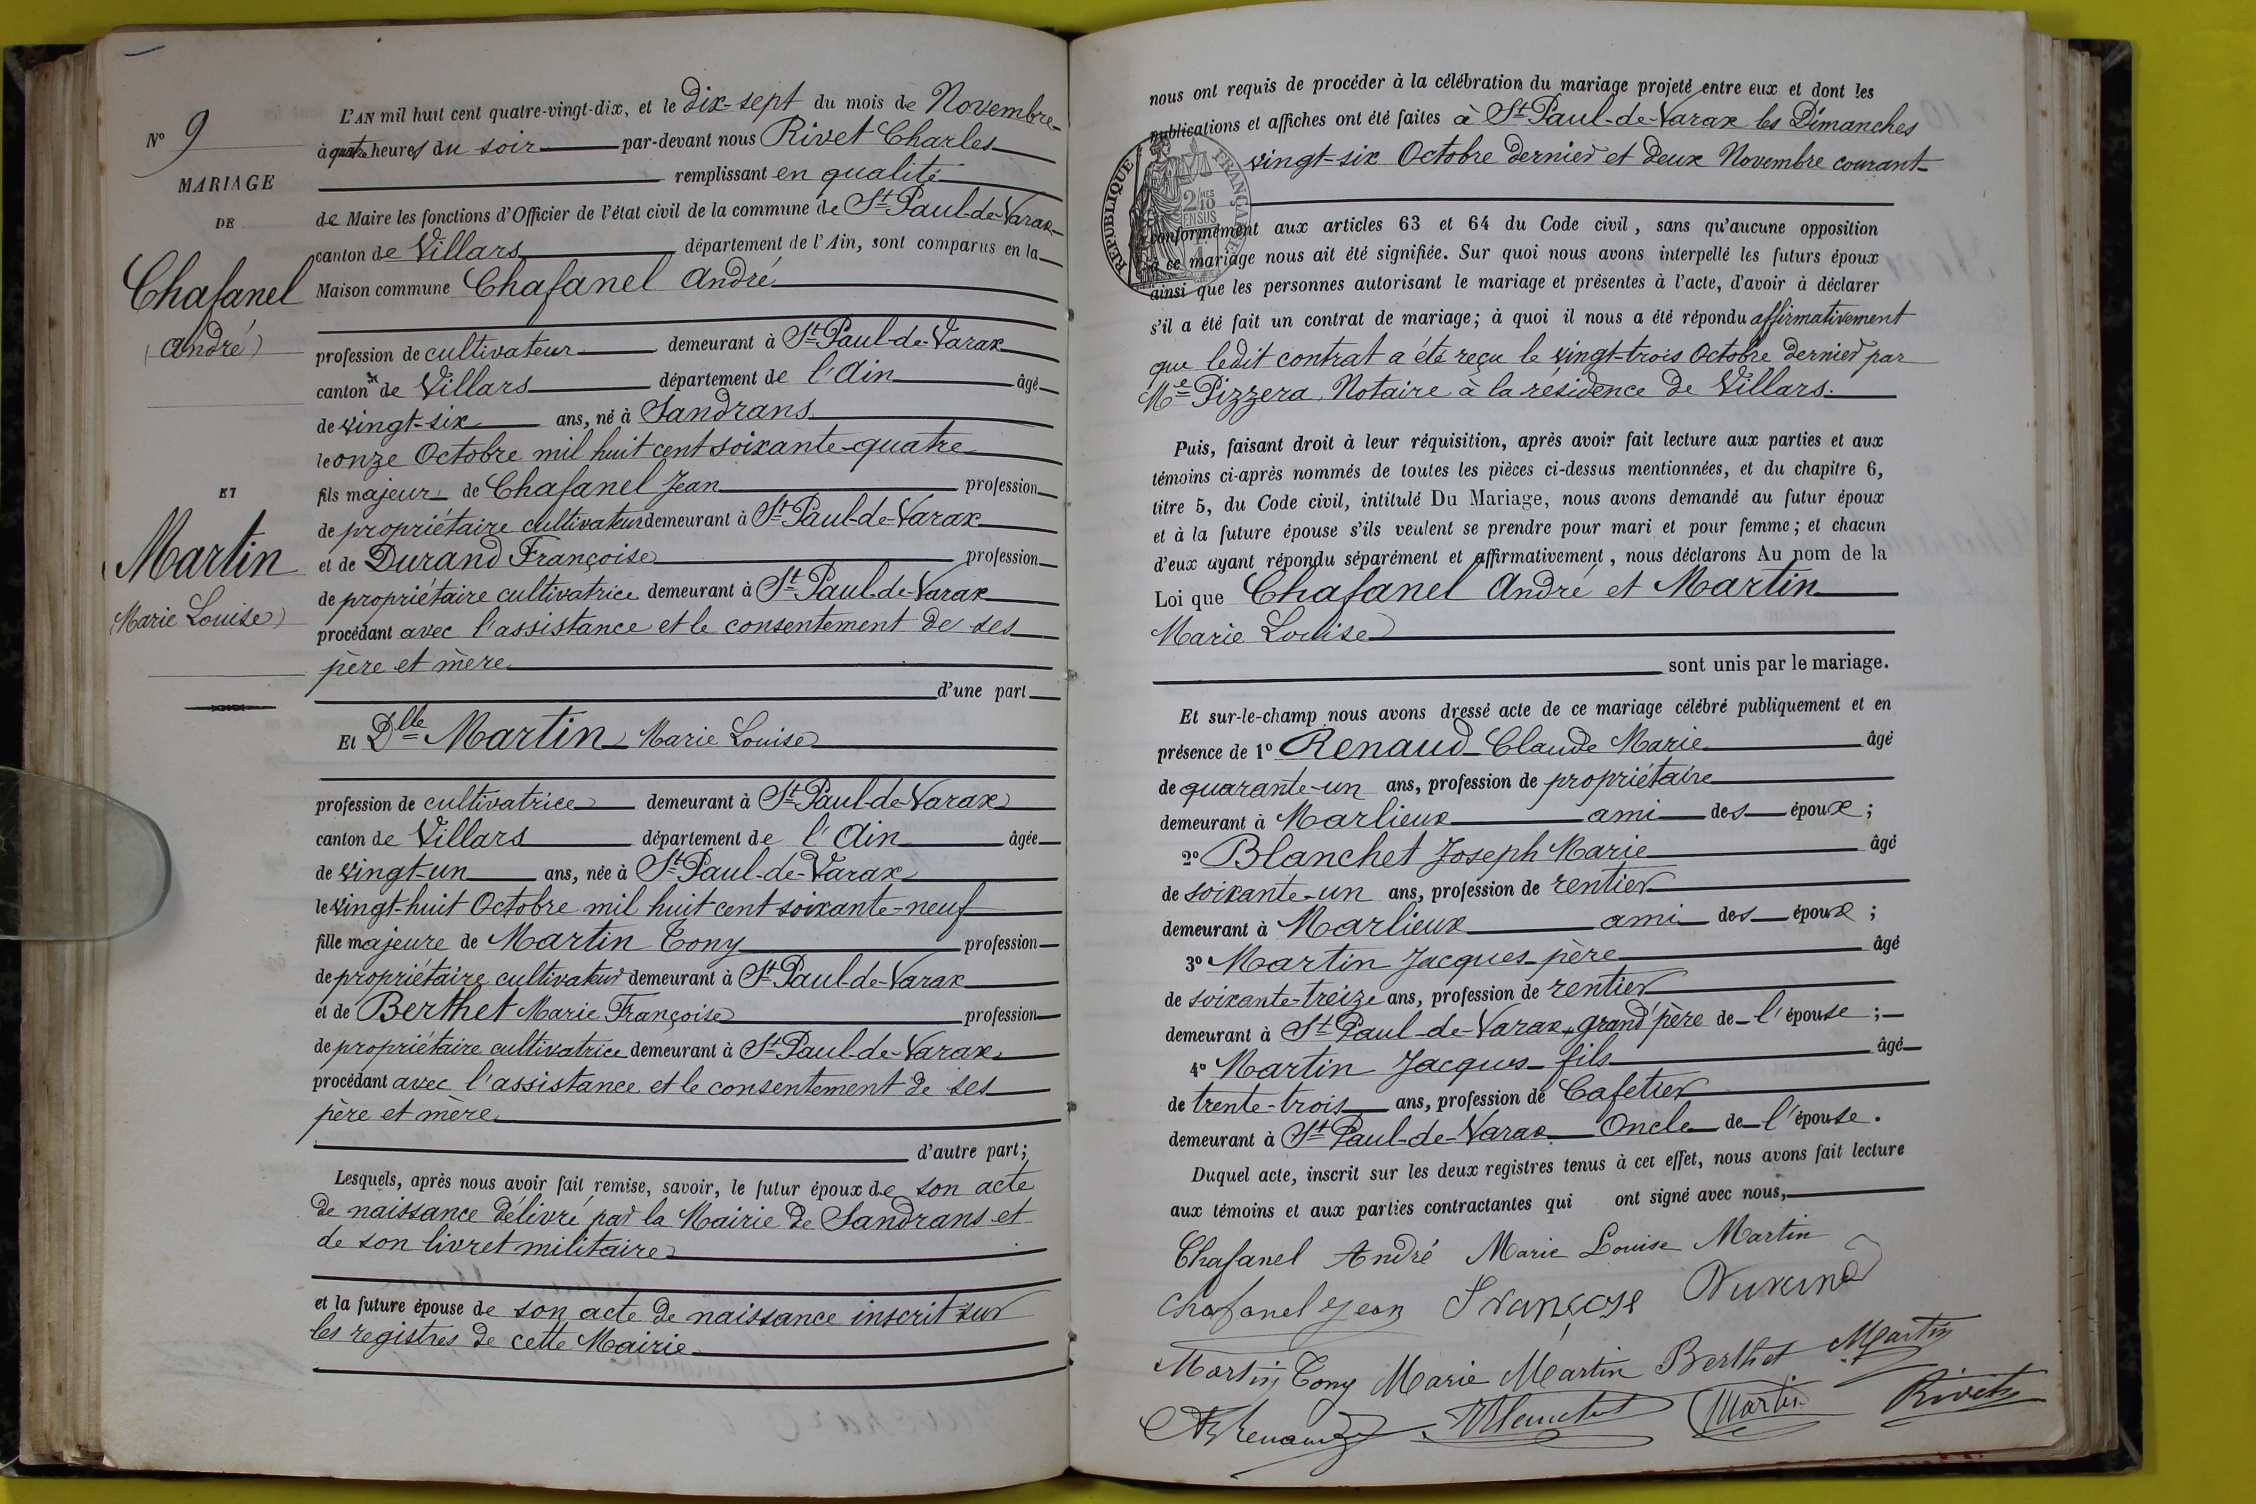 N° 9
MARIAGE
DE
Chafanel
(André)
ET
Martin
(Marie Louise)
L'AN mil huit cent quatre-vingt-dix, et le Dix-sept du mois de Novembre
à quatre heures du soir par-devant nous Rivet Charles
remplissant en qualité
de Maire les fonctions d'Officier de l'état civil de la commune de St Paul-de-Varax
canton de Villars département de l'Ain, sont comparus en la
Maison commune Chafanel André
profession de cultivateur demeurant à St Paul-de-Varax
canton de Villars département de l'Ain âgé
de vingt-six ans, né à Sandrans
le onze Octobre mil huit cent soixante-quatre
fils majeur de Chafanel Jean profession
de propriétaire cultivateur demeurant à St Paul-de-Varax
et de Durand Françoise profession
de propriétaire cultivatrice demeurant à St Paul-de-Varax
procédant avec l'assistance et le consentement de ses
père et mère
d'une part
Et Dlle Martin Marie Louise
profession de cultivatrice demeurant à St Paul-de-Varax
canton de Villars département de l'Ain âgée
de vingt-un ans, née à St Paul-de-Varax
le vingt-huit Octobre mil huit cent soixante-neuf
fille majeure de Martin Tony profession
de propriétaire cultivateur demeurant à St Paul-de-Varax
et de Berthet Marie Françoise profession
de propriétaire cultivatrice demeurant à St Paul-de-Varax
procédant avec l'assistance et le consentement de ses
père et mère
d'autre part;
Lesquels, après nous avoir fait remise, savoir, le futur époux de son acte
de naissance délivré par la Mairie de Sandrans et
de son livret militaire
et la future épouse de son acte de naissance inscrit sur
les registres de cette Mairie
nous ont requis de procéder à la célébration du mariage projeté entre eux et dont les
publications et affiches ont été faites à St Paul-de-Varax les Dimanches
vingt-six Octobre dernier et deux Novembre courant
RÉPUBLIQUE FRANÇAISE
2/10 MES
EN SUS
conformément aux articles 63 et 64 du Code civil, sans qu'aucune opposition
à ce mariage nous ait été signifiée. Sur quoi nous avons interpellé les futurs époux
ainsi que les personnes autorisant le mariage et présentes à l'acte, d'avoir à déclarer
s'il a été fait un contrat de mariage; à quoi il nous a été répondu affirmativement
que ledit contrat a été reçu le vingt-trois Octobre dernier par
Me Pizzera, Notaire à la résidence de Villars.
Puis, faisant droit à leur réquisition, après avoir fait lecture aux parties et aux
témoins ci-après nommés de toutes les pièces ci-dessus mentionnées, et du chapitre 6,
titre 5, du Code civil, intitulé Du Mariage, nous avons demandé au futur époux
et à la future épouse s'ils veulent se prendre pour mari et pour femme; et chacun
d'eux ayant répondu séparément et affirmativement, nous déclarons Au nom de la
Loi que Chafanel André et Martin
Marie Louise
sont unis par le mariage.
Et sur-le-champ nous avons dressé acte de ce mariage célébré publiquement et en
présence de 1° Renaud Claude Marie âgé
de quarante-un ans, profession de propriétaire
demeurant à Marlieux ami des époux;
2° Blanchet Joseph Marie âgé
de soixante-un ans, profession de rentier
demeurant à Marlieux ami des époux;
3° Martin Jacques père âgé
de soixante-treize ans, profession de rentier
demeurant à St Paul-de-Varax, grand'père de l'épouse;
4° Martin Jacques fils âgé
de trente-trois ans, profession de Cafetier
demeurant à St Paul-de-Varax Oncle de l'épouse.
Duquel acte, inscrit sur les deux registres tenus à cet effet, nous avons fait lecture
aux témoins et aux parties contractantes qui ont signé avec nous,
Chafanel André Marie Louise Martin
Chafanel Jean Françoise Durand
Martin Tony Marie Martin Berthet Martin
Renaud Blanchet Martin Rivet